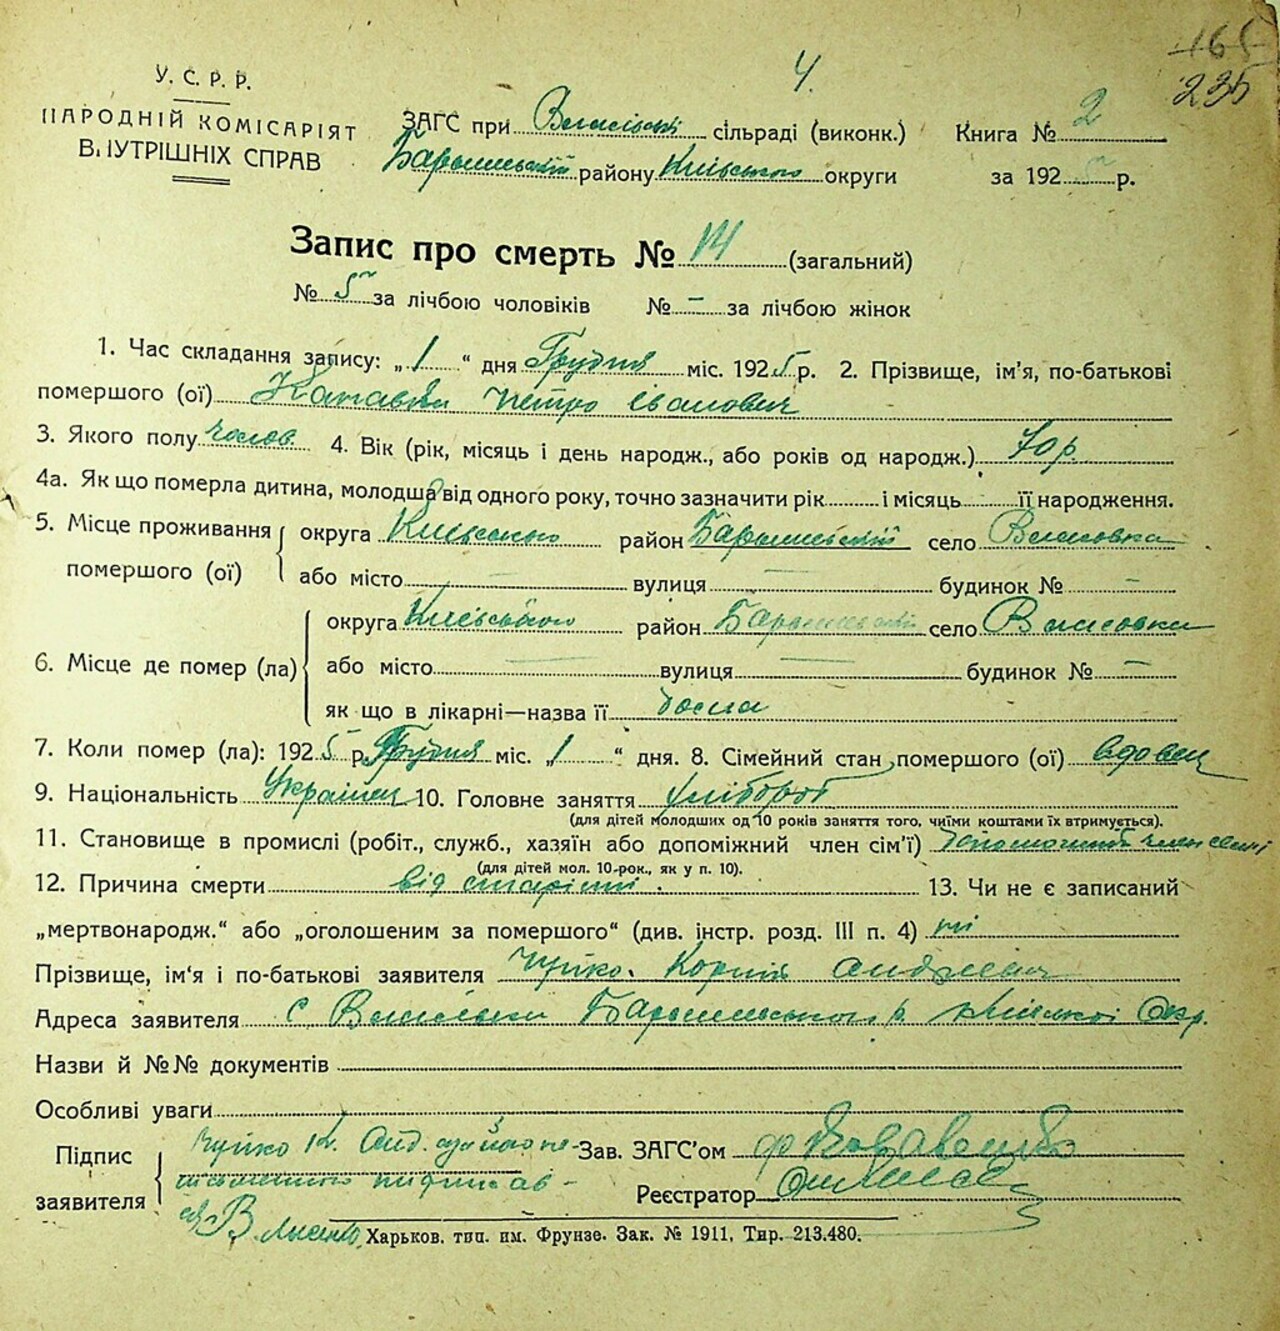 165
235
4.
У. С. Р. Р.
НАРОДНІЙ КОМІСАРІЯТ
ВНУТРІШНІХ СПРАВ
ЗАГС при сільраді (виконк.) Книга № 2
Баришевській району Київського округи за 1925 р.
Запис про смерть № 14 (загальний)
№ 5 за лічбою чоловіків № — за лічбою жінок
1. Час складання запису: „1“ дня Грудня міс. 1925 р. 2. Прізвище, ім'я, по-батькові
помершого (ої) Петро Іванович
3. Якого полу чолов. 4. Вік (рік, місяць і день народж., або років од народж.) 70 р.
4а. Як що померла дитина, молодша від одного року, точно зазначити рік і місяць її народження.
5. Місце проживання помершого (ої) округа Київського район Баришевській село Власовка
або місто — вулиця — будинок № —
6. Місце де помер (ла) округа Київського район Баришевській село Власовка
або місто — вулиця — будинок № —
як що в лікарні—назва її дома
7. Коли помер (ла): 1925 р. Грудня міс. „1“ дня. 8. Сімейний стан помершого (ої) вдовец
9. Національність Українец 10. Головне заняття хлібороб
(для дітей молодших од 10 років заняття того, чиїми коштами їх втримується).
11. Становище в промислі (робіт., служб., хазяїн або допоміжний член сім'ї) член семі
(для дітей мол. 10-рок., як у п. 10).
12. Причина смерти від старісті. 13. Чи не є записаний
„мертвонародж.“ або „оголошеним за помершого“ (див. інстр. розд. III п. 4) ні
Прізвище, ім'я і по-батькові заявителя Чуйко Корній
Адреса заявителя с Баришевського р. Київської Окр.
Назви й №№ документів
Особливі уваги
Підпис заявителя Чуйко К. Анд.
Зав. ЗАГС'ом
Реєстратор
В. Лисенко
Харьков. тип. им. Фрунзе. Зак. № 1911, Тир. 213.480.